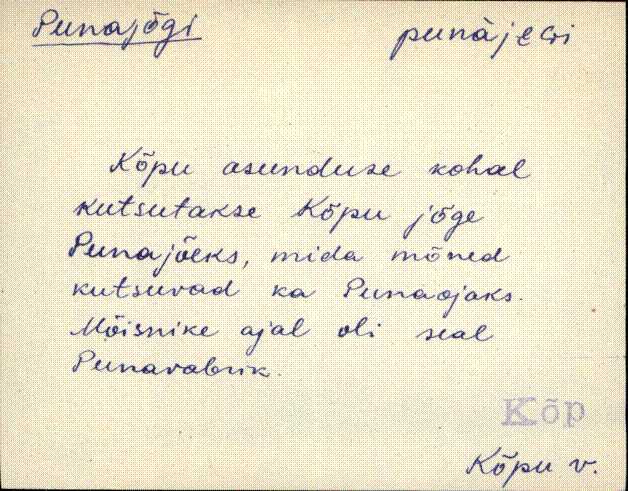 Punajõgi
punàjeGi
Kõpu asunduse kohal
kutsutakse Kõpu jõge
Punajõeks, mida mõned
kutsuvad ka Punaojaks.
Mõisnike ajal oli seal
Punavabrik.
Kõp
Kõpu v.